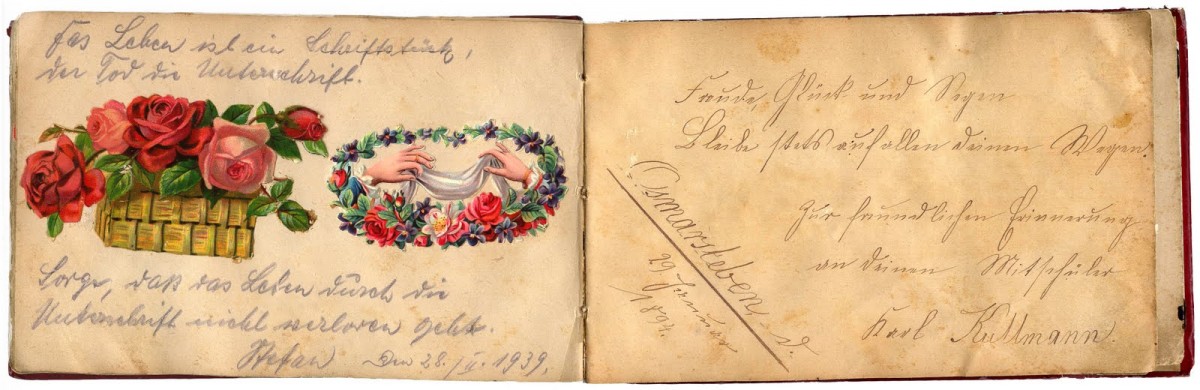 Das Leben ist ein Schriftstück,
der Tod die Unterschrift.
Sorge, daß das Leben durch die
Unterschrift nicht verloren geht.
Stefan Den 28./II. 1939.
Freude, Glück und Segen
Bleibe stets auf allen deinen Wegen.
Zur freundlichen Erinnerung
an deinen Mitschüler
Karl Kullmann.
29. Januar
1894.